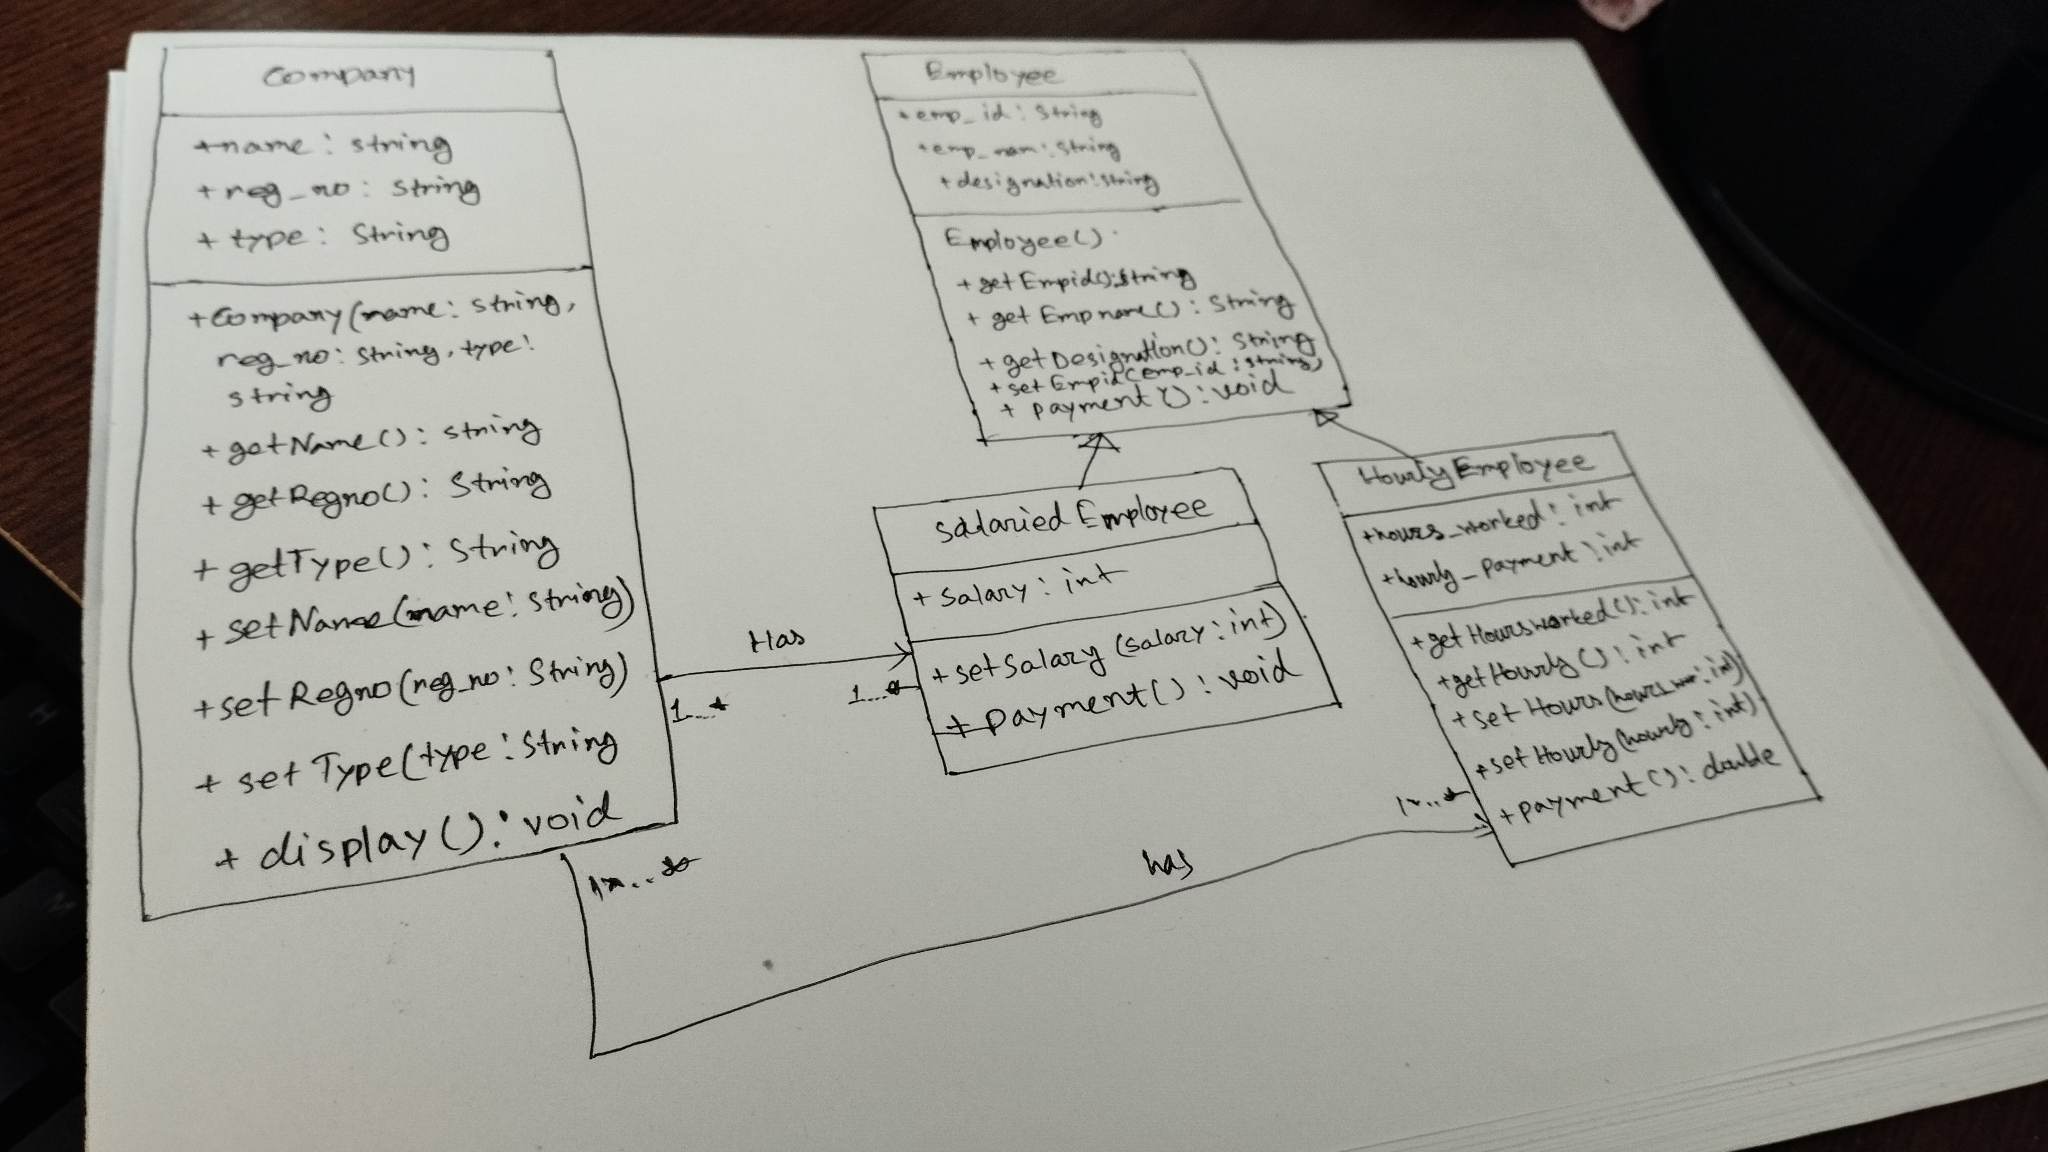 Company
+name: string
+reg_no: string
+ type: String
+Company(name: string,
reg_no: string, type:
string
+ getName(): string
+ getRegno(): String
+ getType(): String
+ setName(name: string)
+set Regno(reg_no: String)
+ set Type(type: String
+ display(): void
Employee
+emp_id: String
+emp_nam: String
+designation: string
Employee()
+ getEmpid(): string
+ get Empname(): String
+ getDesignation(): String
+ set Empid(emp_id: string)
+ payment(): void
salaried Employee
+ salary: int
+setsalary (salary: int)
+ payment(): void
HourlyEmployee
+hours_worked: int
+hourly_payment: int
+get Hoursworked(): int
+getHourly(): int
+ set Hours(hours_wor: int)
+set Hourly(hourly: int)
+payment(): double
Has
1...*
1...*
1...*
has
1...*